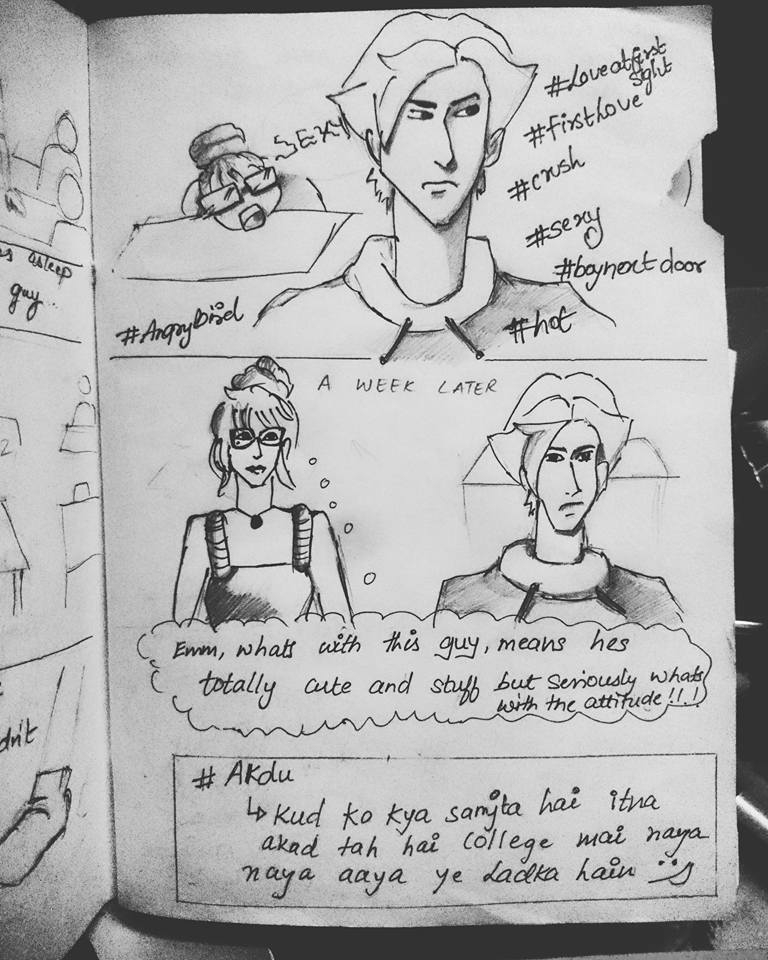 s asleep
guy...
2
dn't
SEXY
#Loveatfirst
sight
#firstLove
#crush
#sexy
#boynext door
#AngryBird
#hot
A WEEK LATER
Emm, whats with this guy, means hes
totally cute and stuff but seriously whats
with the attitude!!.!
# Akdu
↳ Kud ko kya samjta hai itna
akad tah hai college mai naya
naya aaya ye Ladka hain